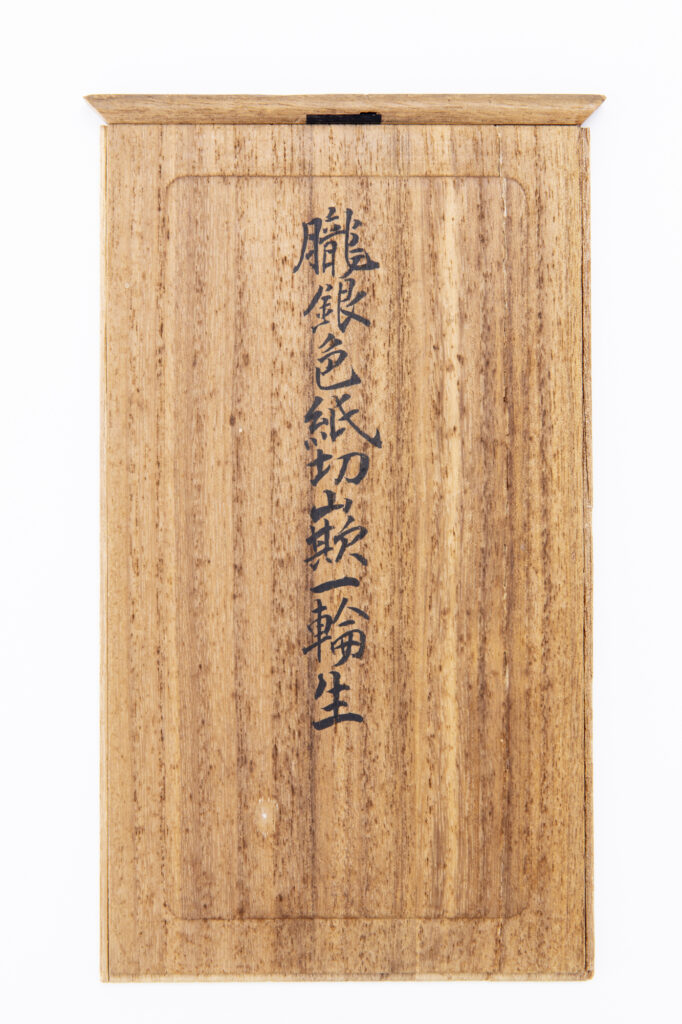 朧銀色紙切嵌一輪生